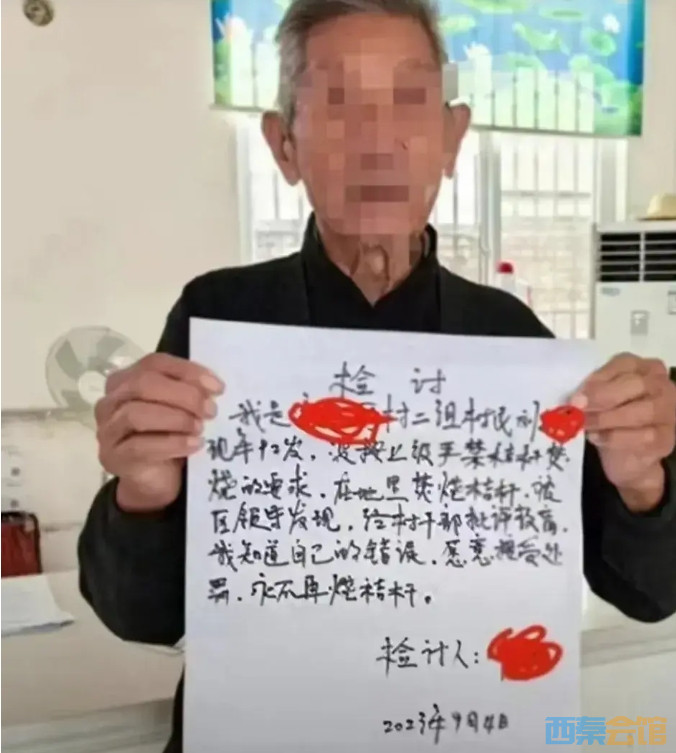 检 讨
我是 村二组村民刘
现年92岁，没按上级严禁秸秆焚
烧的要求，在地里焚烧秸秆，被
区领导发现，给村干部批评教育，
我知道自己的错误，愿意接受处
罚，永不再烧秸秆。
检讨人：
2023年9月4日
西秦会馆